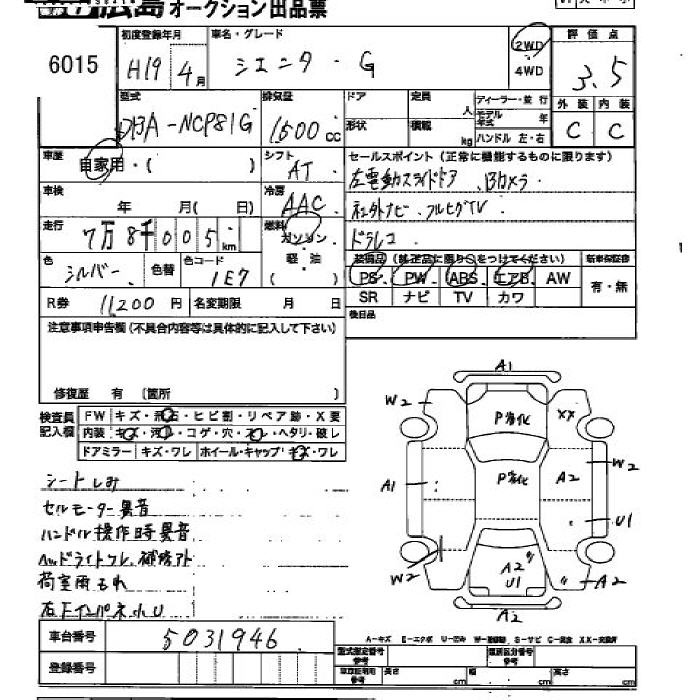 広島オークション出品票
6015
初度登録年月
H19年4月
車名・グレード
シエンタ・G
2WD
4WD
評価点
3.5
外装 内装
C C
型式
DBA-NCP81G
排気量
1500cc
ドア
定員
人
形状
積載
kg
ディーラー・並行
モデル年式 年
ハンドル 左・右
車歴
自家用・( )
シフト
AT
セールスポイント(正常に機能するものに限ります)
左電動スライドドア、Bカメラ
社外ナビ、フルセグTV
ドラレコ
車検
年 月( 日)
冷房
AAC
走行
7万8千005km
燃料
ガソリン
軽・油
( )
色
シルバー
色替
色コード
1E7
装備品(純正品に限り○をつけてください)
新車保証書
PS PW ABS エアB AW
SR ナビ TV カワ
有・無
R券 11,200円
名変期限 月 日
後日品
注意事項申告欄(不具合内容等は具体的に記入して下さい)
修復歴 有 〔箇所 〕
検査員記入欄
FW キズ・飛石・ヒビ割・リペア跡・X要
内装
ドアミラー キズ・ワレ ホイール・キャップ キズ・ワレ
シートしみ
セルモーター異音
ハンドル操作時異音
ヘッドライトワレ、補修アト
荷室雨もれ
右Fインパネ小U
A1
W2
P劣化
XX
W2
A1
P劣化
A2
U1
W2
A2
U1
A2
A2
車台番号
5031946
登録番号
A-キズ E-エクボ U-凹み W-補修跡 S-サビ C-腐食 XX-交換済
型式指定番号
参考
類別区分番号
参考
長さ cm
幅 cm
高さ cm